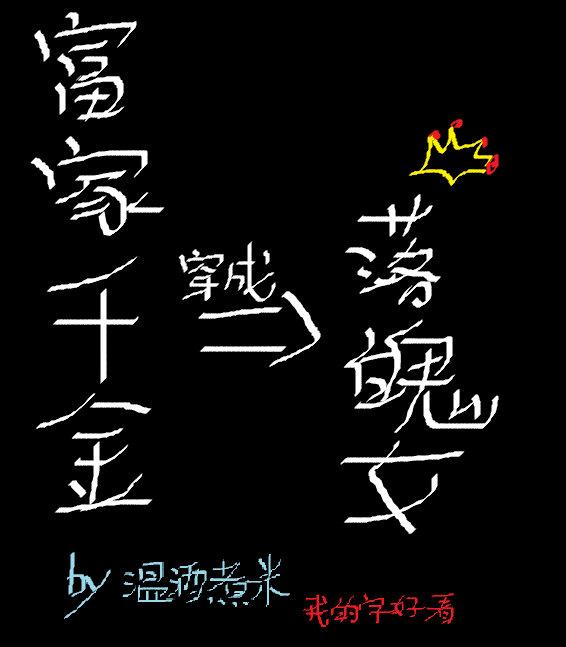 富家千金
穿成
落魄女
by 温酒煮米
我的字好看